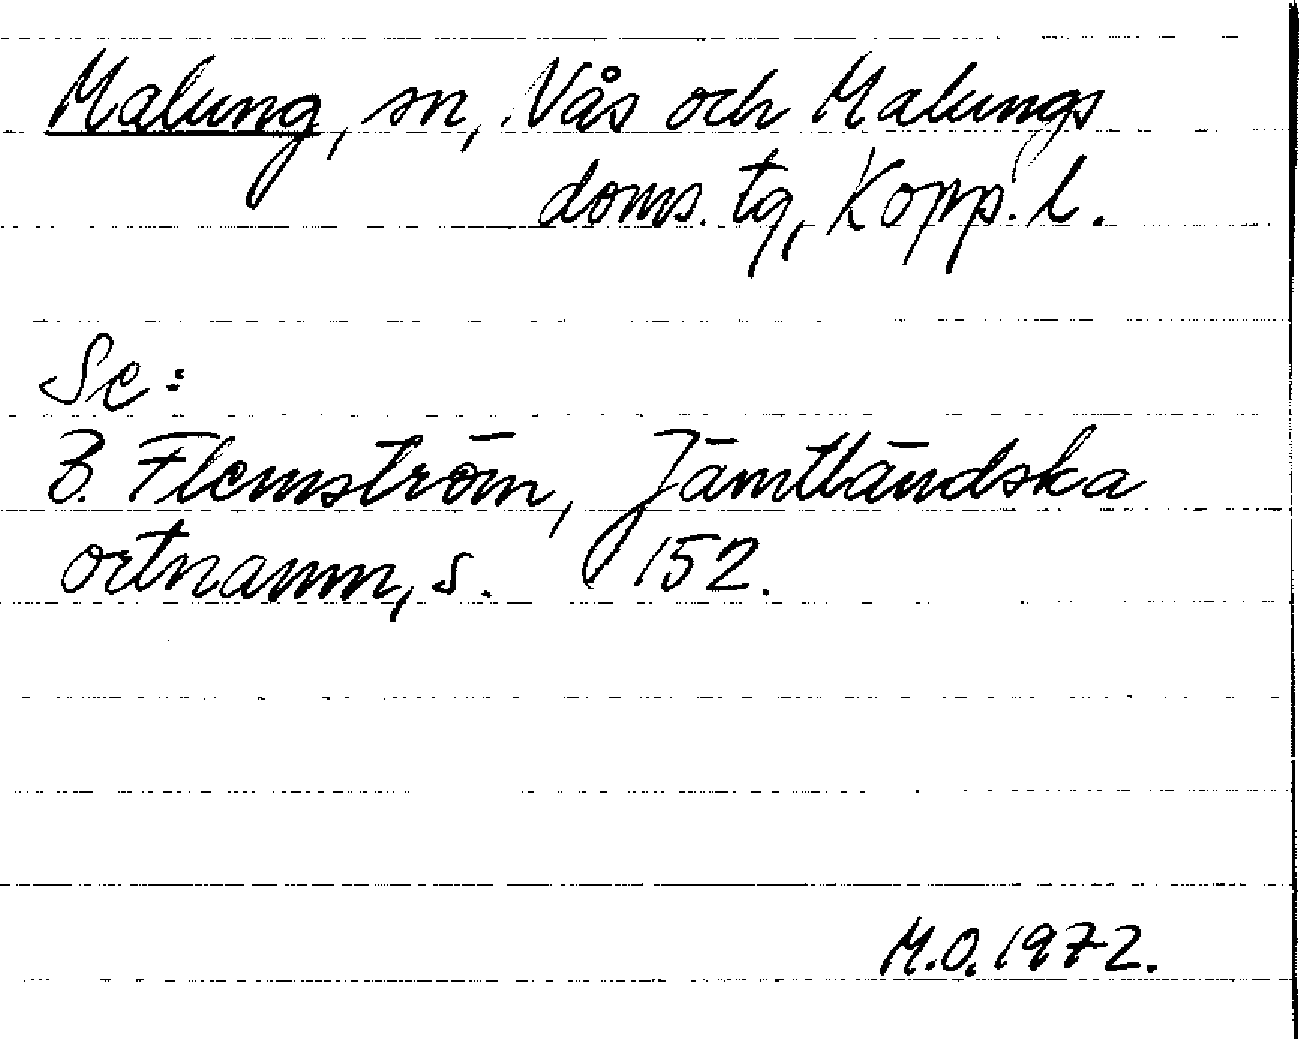 Malung, sn, Nås och Malungs
doms. tg, Kopp. l.
Se:
B. Flemström, Jämtländska
ortnamn, s. 152.
M.O. 1972.